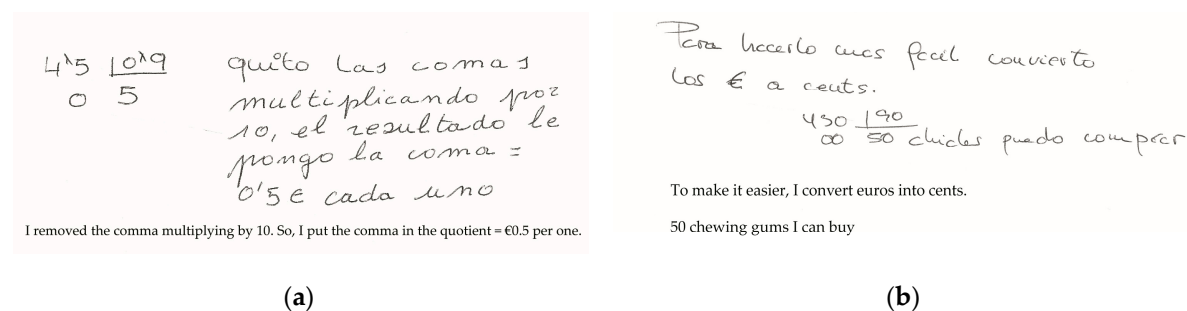 4'5 0'9
0 5
quito las comas
multiplicando por
10, el resultado le
pongo la coma =
0'5 € cada uno
I removed the comma multiplying by 10. So, I put the comma in the quotient = €0.5 per one.
(a)
Para hacerlo mas facil convierto
los € a cents.
450 190
00 50 chicles puedo comprar
To make it easier, I convert euros into cents.
50 chewing gums I can buy
(b)